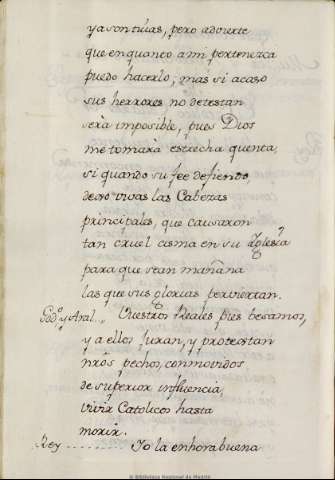 ya son tuias, pero advierte
que en quanto a mi pertenezca
puedo hacerlo; mas si acaso
sus herrores no detestan
será imposible, pues Dios
me tomará estrecha quenta,
si quando su fee defiendo
dexo vivas las Cabezas
principales, que causaron
tan cruel cisma en su Iglesia
para que sean mañana
las que sus glorias perviertan.
God.º y Aral... Vuestros Reales pies besamos,
y a ellos juran, y protestan
nrõs pechos, conmovidos
de superior influencia,
vivir Catolicos hasta
morir.
Rey .......... Yo la enhorabuena
© Biblioteca Nacional de Madrid